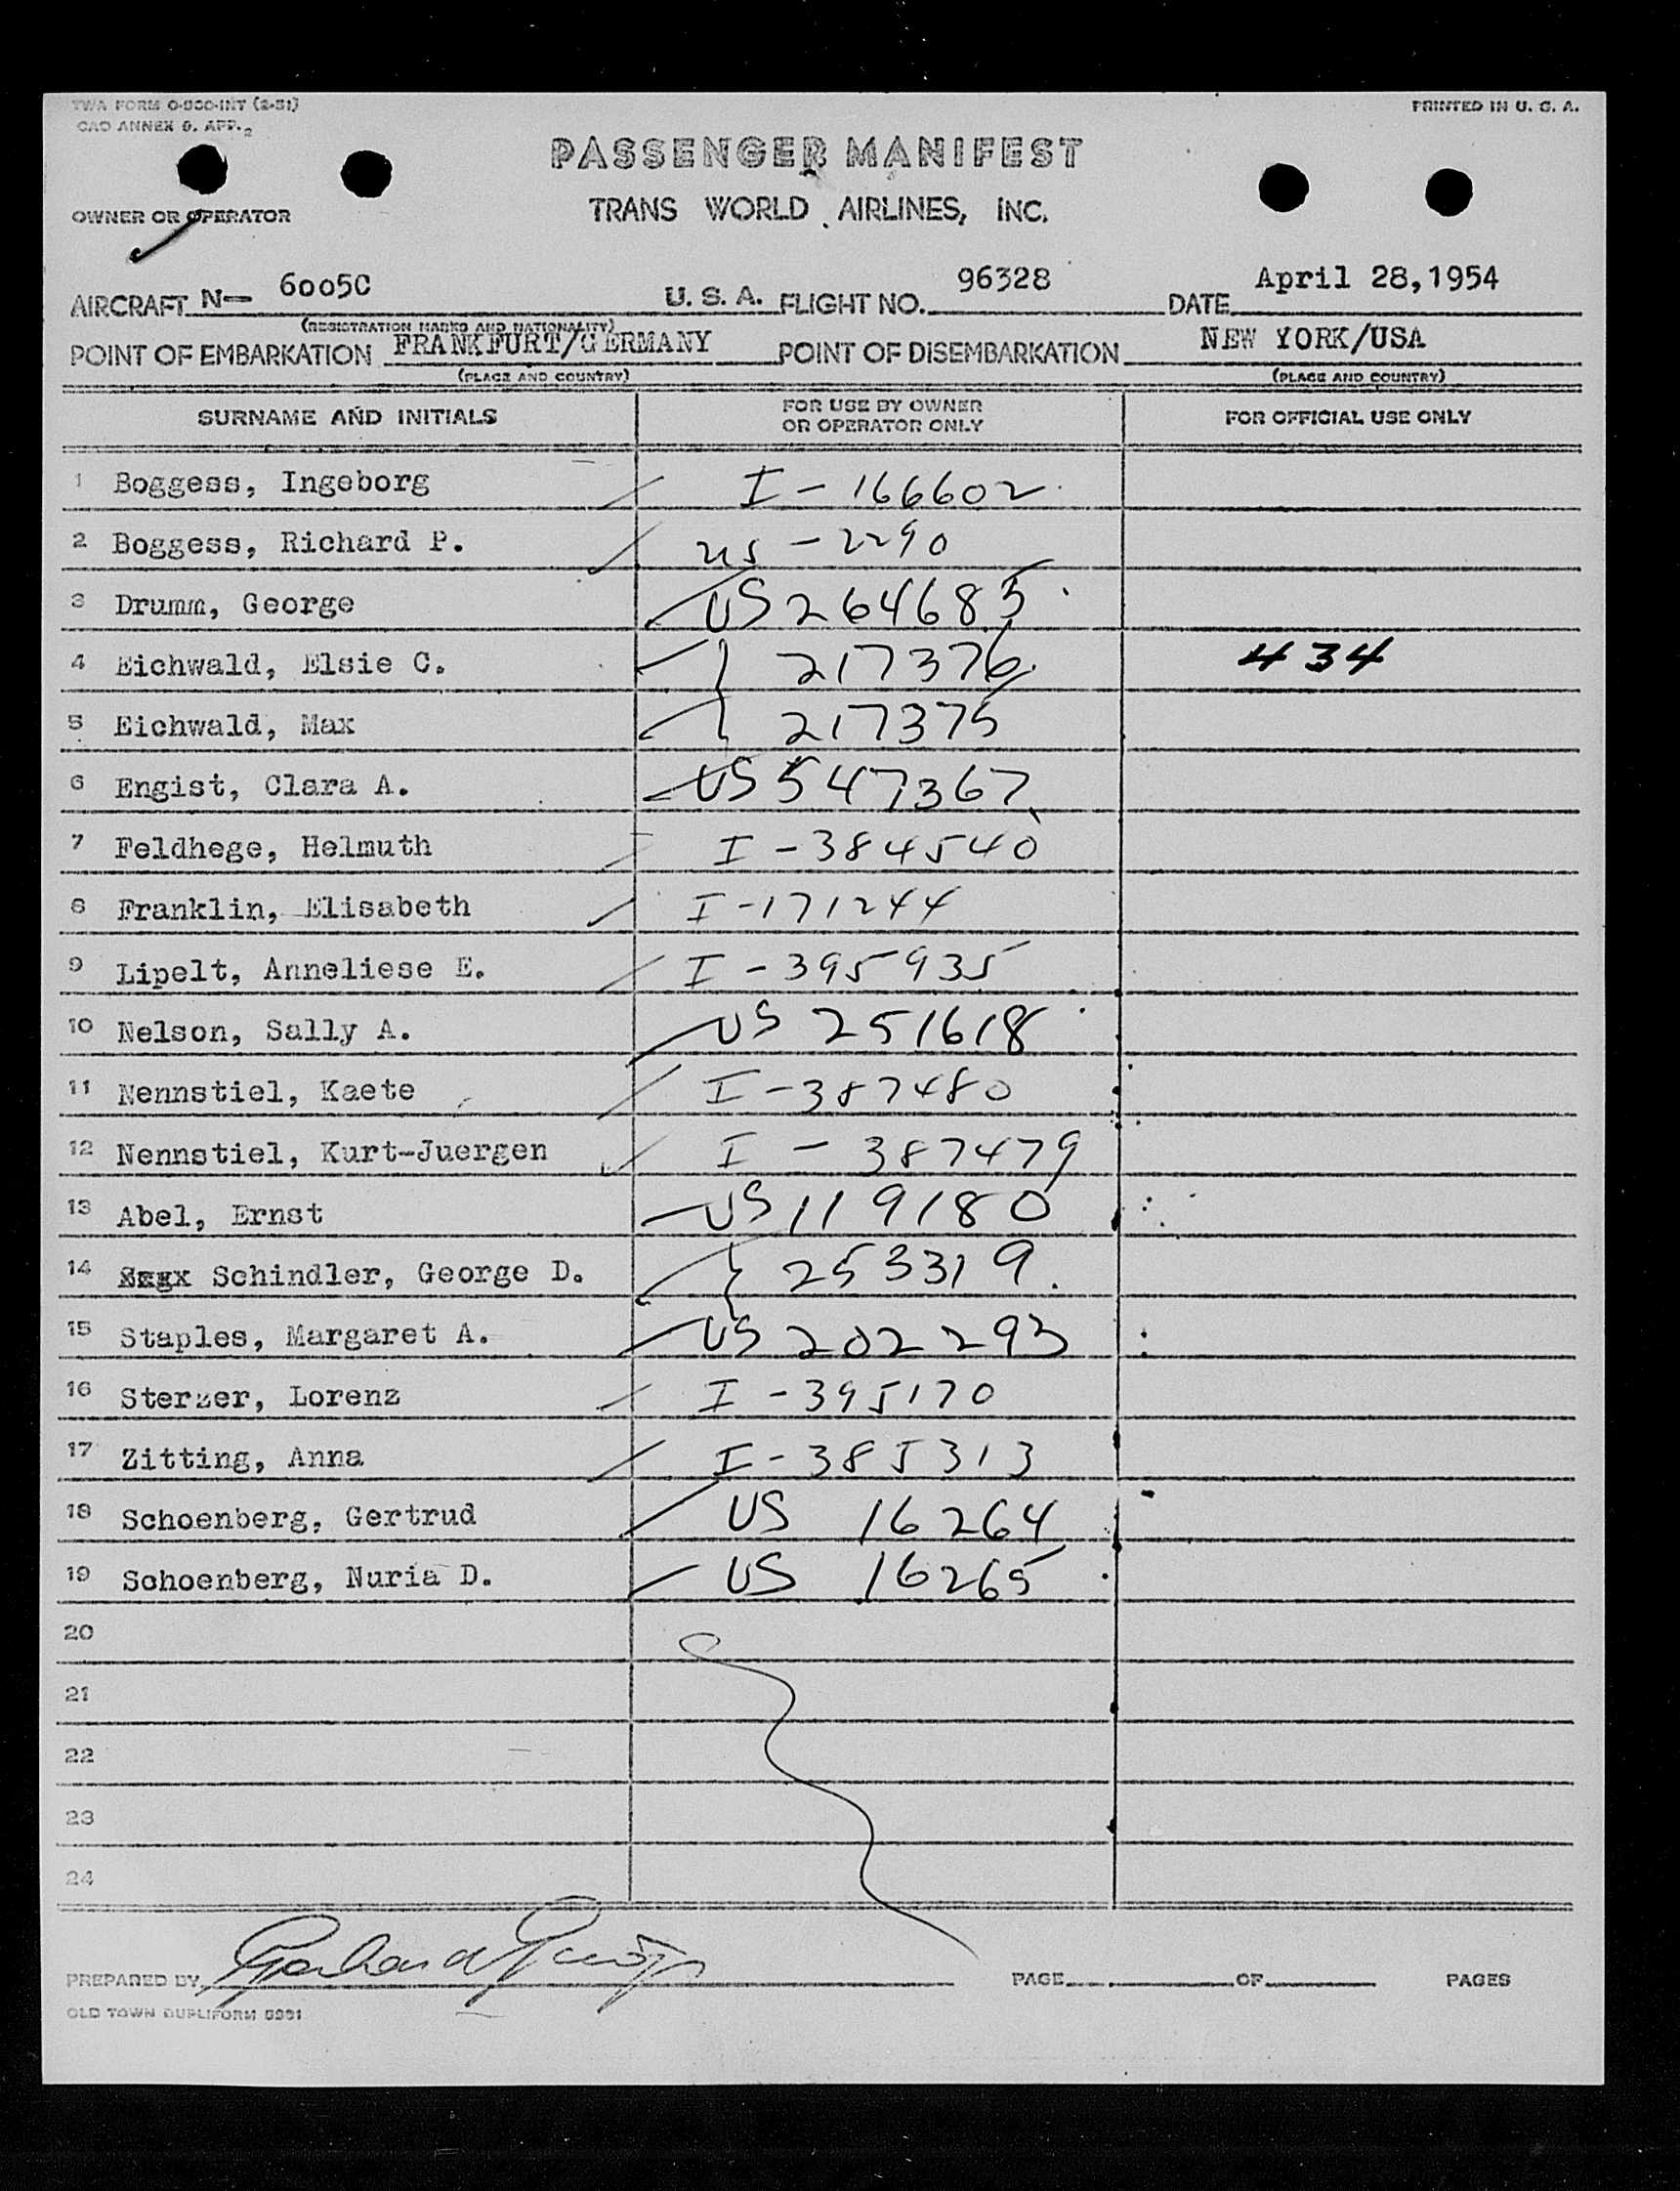 TWA FORM O-800-INT (2-51)
PRINTED IN U. S. A.
CAO ANNEX 9. APP. 2
PASSENGER MANIFEST
OWNER OR OPERATOR
TRANS WORLD AIRLINES, INC.
AIRCRAFT N— 6005C U. S. A. FLIGHT NO. 96328 DATE April 28,1954
(REGISTRATION MARKS AND NATIONALITY)
POINT OF EMBARKATION FRANKFURT/GERMANY POINT OF DISEMBARKATION NEW YORK/USA
(PLACE AND COUNTRY) (PLACE AND COUNTRY)
SURNAME AND INITIALS FOR USE BY OWNER OR OPERATOR ONLY FOR OFFICIAL USE ONLY
1 Boggess, Ingeborg I - 166602
2 Boggess, Richard P. US - 2290
3 Drumm, George US 264685
4 Eichwald, Elsie C. 217376 434
5 Eichwald, Max 217375
6 Engist, Clara A. US 547367
7 Feldhege, Helmuth I - 384540
8 Franklin, Elisabeth I - 171244
9 Lipelt, Anneliese E. I - 395935
10 Nelson, Sally A. US 251618
11 Nennstiel, Kaete I - 387480
12 Nennstiel, Kurt-Juergen I - 387479
13 Abel, Ernst US 119180
14 Schindler, George D. 253319
15 Staples, Margaret A. US 202293
16 Sterzer, Lorenz I - 395170
17 Zitting, Anna I - 385313
18 Schoenberg, Gertrud US 16264
19 Schoenberg, Nuria D. US 16265
20
21
22
23
24
PREPARED BY Gerhard PAGE OF PAGES
OLD TOWN DUPLIFORM